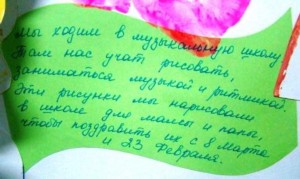 Мы ходим в музыкальную школу
Там нас учат рисовать,
заниматься музыкой и ритмикой.
Эти рисунки мы нарисовали
в школе для мамы и папы,
чтобы поздравить их с 8 Марта
и 23 Февраля.